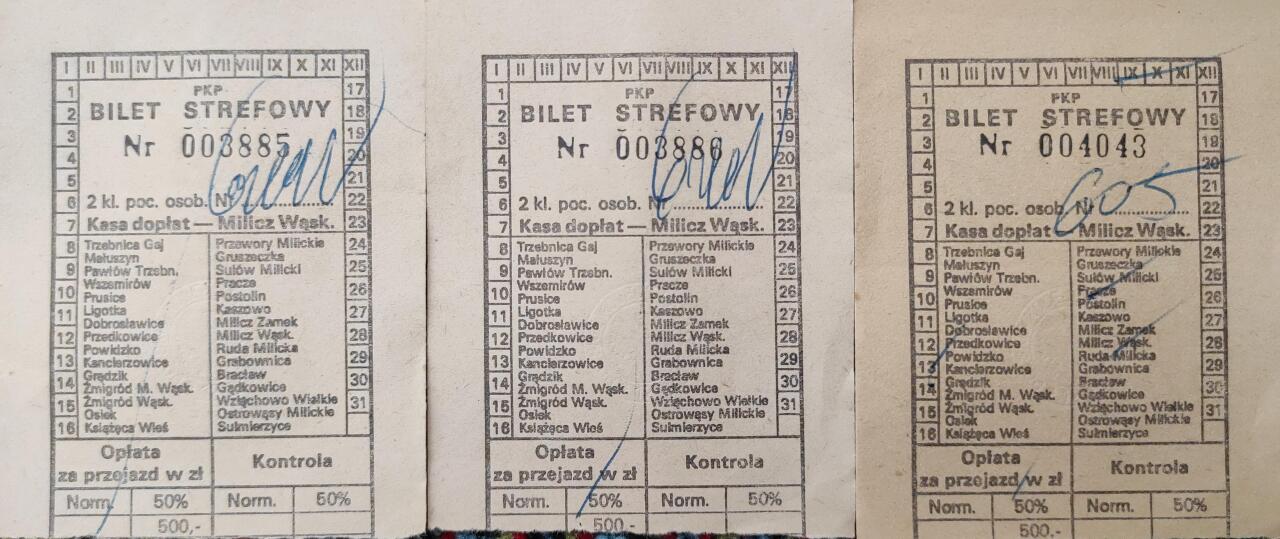 I II III IV V VI VII VIII IX X XI XII
1 PKP 17
2 BILET STREFOWY 18
3 Nr 003885 19
4 20
5 21
6 2 kl. poc. osob. Nr 22
7 Kasa dopłat — Milicz Wąsk. 23
8 Trzebnica Gaj Przewory Milickie 24
Małuszyn Gruszeczka
9 Pawłów Trzebn. Sułów Milicki 25
Wszemirów Pracze
10 Prusice Postolin 26
Ligotka Kaszowo
11 Dobrosławice Milicz Zamek 27
12 Przedkowice Milicz Wąsk. 28
Powidzko Ruda Milicka
13 Kanclerzowice Grabownica 29
Grądzik Bracław
14 Żmigród M. Wąsk. Gądkowice 30
15 Żmigród Wąsk. Wziąchowo Wielkie 31
Osiek Ostrowąsy Milickie
16 Książęca Wieś Sulmierzyce
Opłata
za przejazd w zł Kontrola
Norm. 50% Norm. 50%
500,-
I II III IV V VI VII VIII IX X XI XII
1 PKP 17
2 BILET STREFOWY 18
3 Nr 003886 19
4 20
5 21
6 2 kl. poc. osob. Nr 22
7 Kasa dopłat — Milicz Wąsk. 23
8 Trzebnica Gaj Przewory Milickie 24
Małuszyn Gruszeczka
9 Pawłów Trzebn. Sułów Milicki 25
Wszemirów Pracze
10 Prusice Postolin 26
Ligotka Kaszowo
11 Dobrosławice Milicz Zamek 27
12 Przedkowice Milicz Wąsk. 28
Powidzko Ruda Milicka
13 Kanclerzowice Grabownica 29
Grądzik Bracław
14 Żmigród M. Wąsk. Gądkowice 30
15 Żmigród Wąsk. Wziąchowo Wielkie 31
Osiek Ostrowąsy Milickie
16 Książęca Wieś Sulmierzyce
Opłata
za przejazd w zł Kontrola
Norm. 50% Norm. 50%
500,-
I II III IV V VI VII VIII IX X XI XII
1 PKP 17
2 BILET STREFOWY 18
3 Nr 004043 19
4 20
5 21
6 2 kl. poc. osob. Nr 605 22
7 Kasa dopłat — Milicz Wąsk. 23
8 Trzebnica Gaj Przewory Milickie 24
Małuszyn Gruszeczka
9 Pawłów Trzebn. Sułów Milicki 25
Wszemirów Pracze
10 Prusice Postolin 26
Ligotka Kaszowo
11 Dobrosławice Milicz Zamek 27
12 Przedkowice Milicz Wąsk. 28
Powidzko Ruda Milicka
13 Kanclerzowice Grabownica 29
Grądzik Bracław
14 Żmigród M. Wąsk. Gądkowice 30
15 Żmigród Wąsk. Wziąchowo Wielkie 31
Osiek Ostrowąsy Milickie
16 Książęca Wieś Sulmierzyce
Opłata
za przejazd w zł Kontrola
Norm. 50% Norm. 50%
500,-